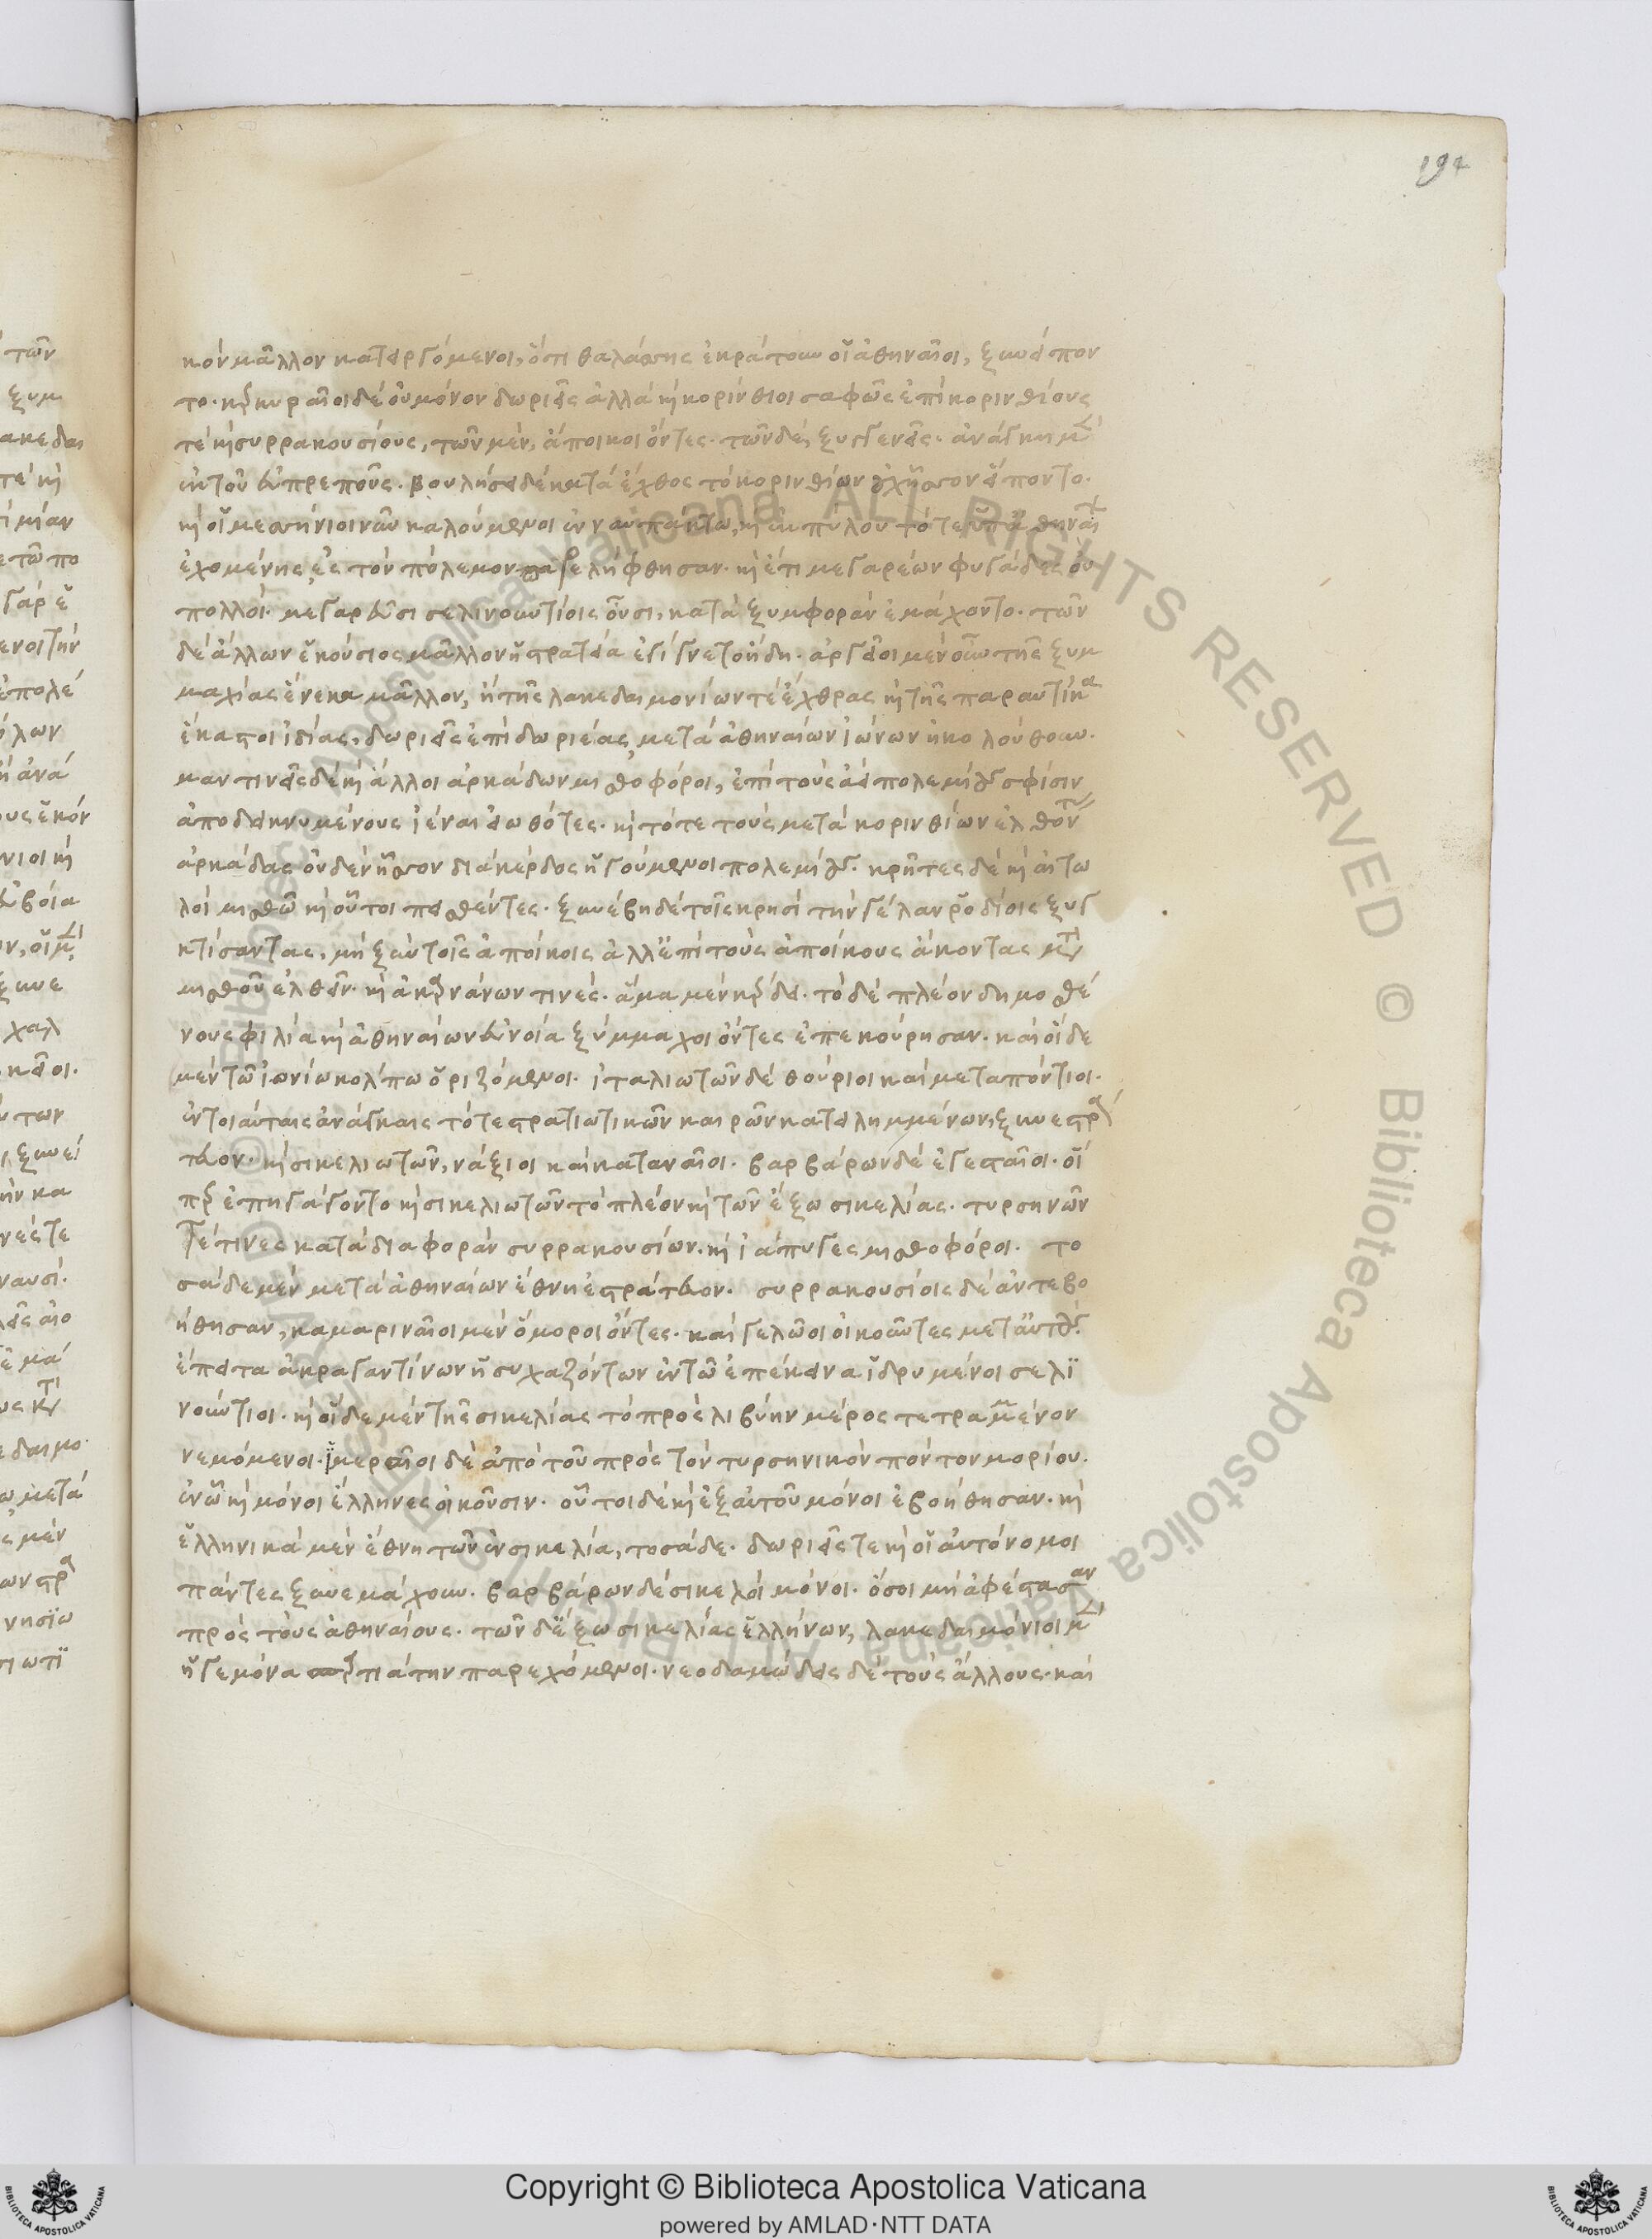 194
κὸν μᾶλλον κατειργόμενοι, ὅτι θαλάσσης ἐκράτουν οἱ ἀθηναῖοι, ξυνείπον
το· κερκυραῖοι δὲ οὐ μόνον δωριεῖς ἀλλὰ καὶ κορίνθιοι σαφῶς ἐπὶ κορινθίους
τὲ καὶ συρρακουσίους, τῶν μὲν, ἄποικοι ὄντες· τῶν δὲ, ξυγγενεῖς· ἀνάγκη μὲν
ἐκ τοῦ εὐπρεποῦς· βουλήσει δὲ κατὰ ἔχθος τὸ κορινθίων οὐχ ἧσσον εἵποντο·
καὶ οἱ μεσσήνιοι νῦν καλούμενοι ἐν ναυπάκτω, καὶ ἐκ πύλου τότε ὑπ' ἀθηναί
ἐχομένης, ἐς τὸν πόλεμον παρελήφθησαν· καὶ ἔτι μεγαρέων φυγάδες οὐ
πολλοί· μεγαρεῦσι σελινουντίοις οὖσι, κατὰ ξυμφορὰν ἐμάχοντο· τῶν
δὲ ἄλλων ἑκούσιος μᾶλλον ἡ στρατεία ἐγίγνετο ἤδη· ἀργεῖοι μὲν οὖν τῆς ξυμ
μαχίας ἕνεκα μᾶλλον, ἢ τῆς λακεδαιμονίων τὲ ἔχθρας καὶ τῆς παραυτίκα
ἕκαστοι ἰδίας, δωριεῖς ἐπὶ δωριέας, μετὰ ἀθηναίων ἰώνων ἠκολούθουν·
μαντινεῖς δὲ καὶ ἄλλοι ἀρκάδων μισθοφόροι, ἐπὶ τοὺς ἀεὶ πολεμίους σφίσιν
ἀποδεικνυμένους ἰέναι εἰωθότες· καὶ τότε τοὺς μετὰ κορινθίων ἐλθόντας
ἀρκάδας οὐδὲν ἧσσον διὰ κέρδος ἡγούμενοι πολεμίους· κρῆτες δὲ καὶ αἰτω
λοὶ μισθῶ καὶ οὗτοι πεισθέντες· ξυνέβη δὲ τοῖς κρησὶ τὴν γέλαν ῥοδίοις ξυγ
κτίσαντας, μὴ ξὺν τοῖς ἀποίκοις ἀλλ' ἐπὶ τοὺς ἀποίκους ἄκοντας μετὰ
μισθοῦ ἐλθεῖν· καὶ ἀκαρνάνων τινὲς· ἅμα μὲν κέρδει· τὸ δὲ πλέον δημοσθέ
νους φιλία καὶ ἀθηναίων εὐνοία ξύμμαχοι ὄντες ἐπεκούρησαν· καὶ οἵδε
μὲν τῶ ἰονίω κόλπω ὁριζόμενοι· ἰταλιωτῶν δὲ θούριοι καὶ μεταπόντιοι·
ἐν τοιαύταις ἀνάγκαις τότε στρατιωτικῶν καιρῶν κατειλημμένων, ξυνεστρά
τευον· καὶ σικελιωτῶν, νάξιοι καὶ καταναῖοι· βαρβάρων δὲ ἐγεσταῖοι· οἵ
περ ἐπηγάγοντο καὶ σικελιωτῶν τὸ πλέον καὶ τῶν ἔξω σικελίας· τυρσηνῶν
τέ τινες κατὰ διαφορὰν συρρακουσίων· καὶ ἰάπυγες μισθοφόροι· το
σάδε μὲν μετὰ ἀθηναίων ἔθνη ἐστράτευον· συρρακουσίοις δὲ ἀντεβο
ήθησαν, καμαριναῖοι μὲν ὅμοροι ὄντες· καὶ γελῶοι οἰκοῦντες μετ' αὐτούς·
ἔπειτα ἀκραγαντίνων ἡσυχαζόντων ἐν τῶ ἐπέκεινα ἱδρυμένοι σελι
νούντιοι· καὶ οἵδε μὲν τῆς σικελίας τὸ πρὸς λιβύην μέρος τετραμμένον
νεμόμενοι· ἱμεραῖοι δὲ ἀπὸ τοῦ πρὸς τὸν τυρσηνικὸν πόντον μορίου·
ἐν ὧ καὶ μόνοι ἕλληνες οἰκοῦσιν· οὗτοι δὲ καὶ ἐξ αὐτοῦ μόνοι ἐβοήθησαν· καὶ
ἑλληνικὰ μὲν ἔθνη τῶν ἐν σικελία, τοσάδε· δωριεῖς τε καὶ οἱ αὐτόνομοι
πάντες ξυνεμάχουν· βαρβάρων δὲ σικελοὶ μόνοι· ὅσοι μὴ ἀφέστασαν
πρὸς τοὺς ἀθηναίους· τῶν δ' ἔξω σικελίας ἑλλήνων, λακεδαιμόνιοι μὲν
ἡγεμόνα σπαρτιάτην παρεχόμενοι· νεοδαμώδεις δὲ τοὺς ἄλλους· καὶ
Copyright © Biblioteca Apostolica Vaticana
powered by AMLAD·NTT DATA